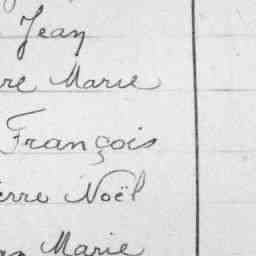 Jean
Marie
François
Noël
Marie